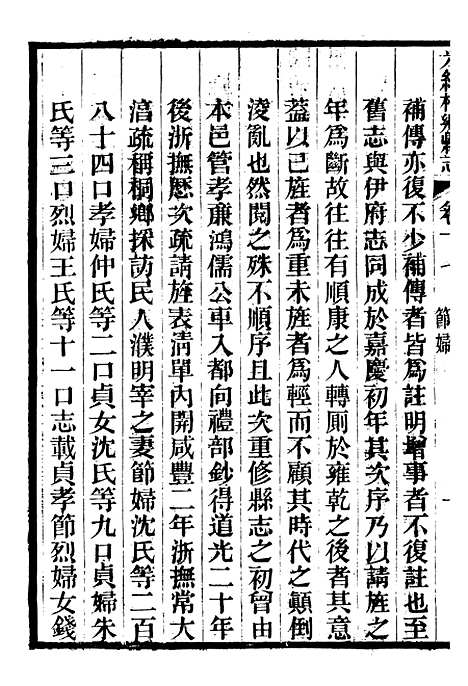 光緒桐鄉縣志 卷十七 節婦 一
補傳亦復不少補傳者皆爲註明增事者不復註也至
舊志與伊府志同成於嘉慶初年其次序乃以請旌之
年爲斷故往往有順康之人轉則於雍乾之後者其意
葢以已旌者爲重未旌者爲輕而不顧其時代之顚倒
淩亂也然閱之殊不順序且此次重修縣志之初曾由
本邑管孝亷鴻儒公車入都向禮部鈔得道光二十年
後浙撫歷次疏請旌表淸單內開咸豐二年浙撫常大
淳疏稱桐鄕採訪民人濮明宰之妻節婦沈氏等二百
八十四口孝婦仲氏等二口貞女沈氏等九口貞婦朱
氏等三口烈婦王氏等十一口志載貞孝節烈婦女錢